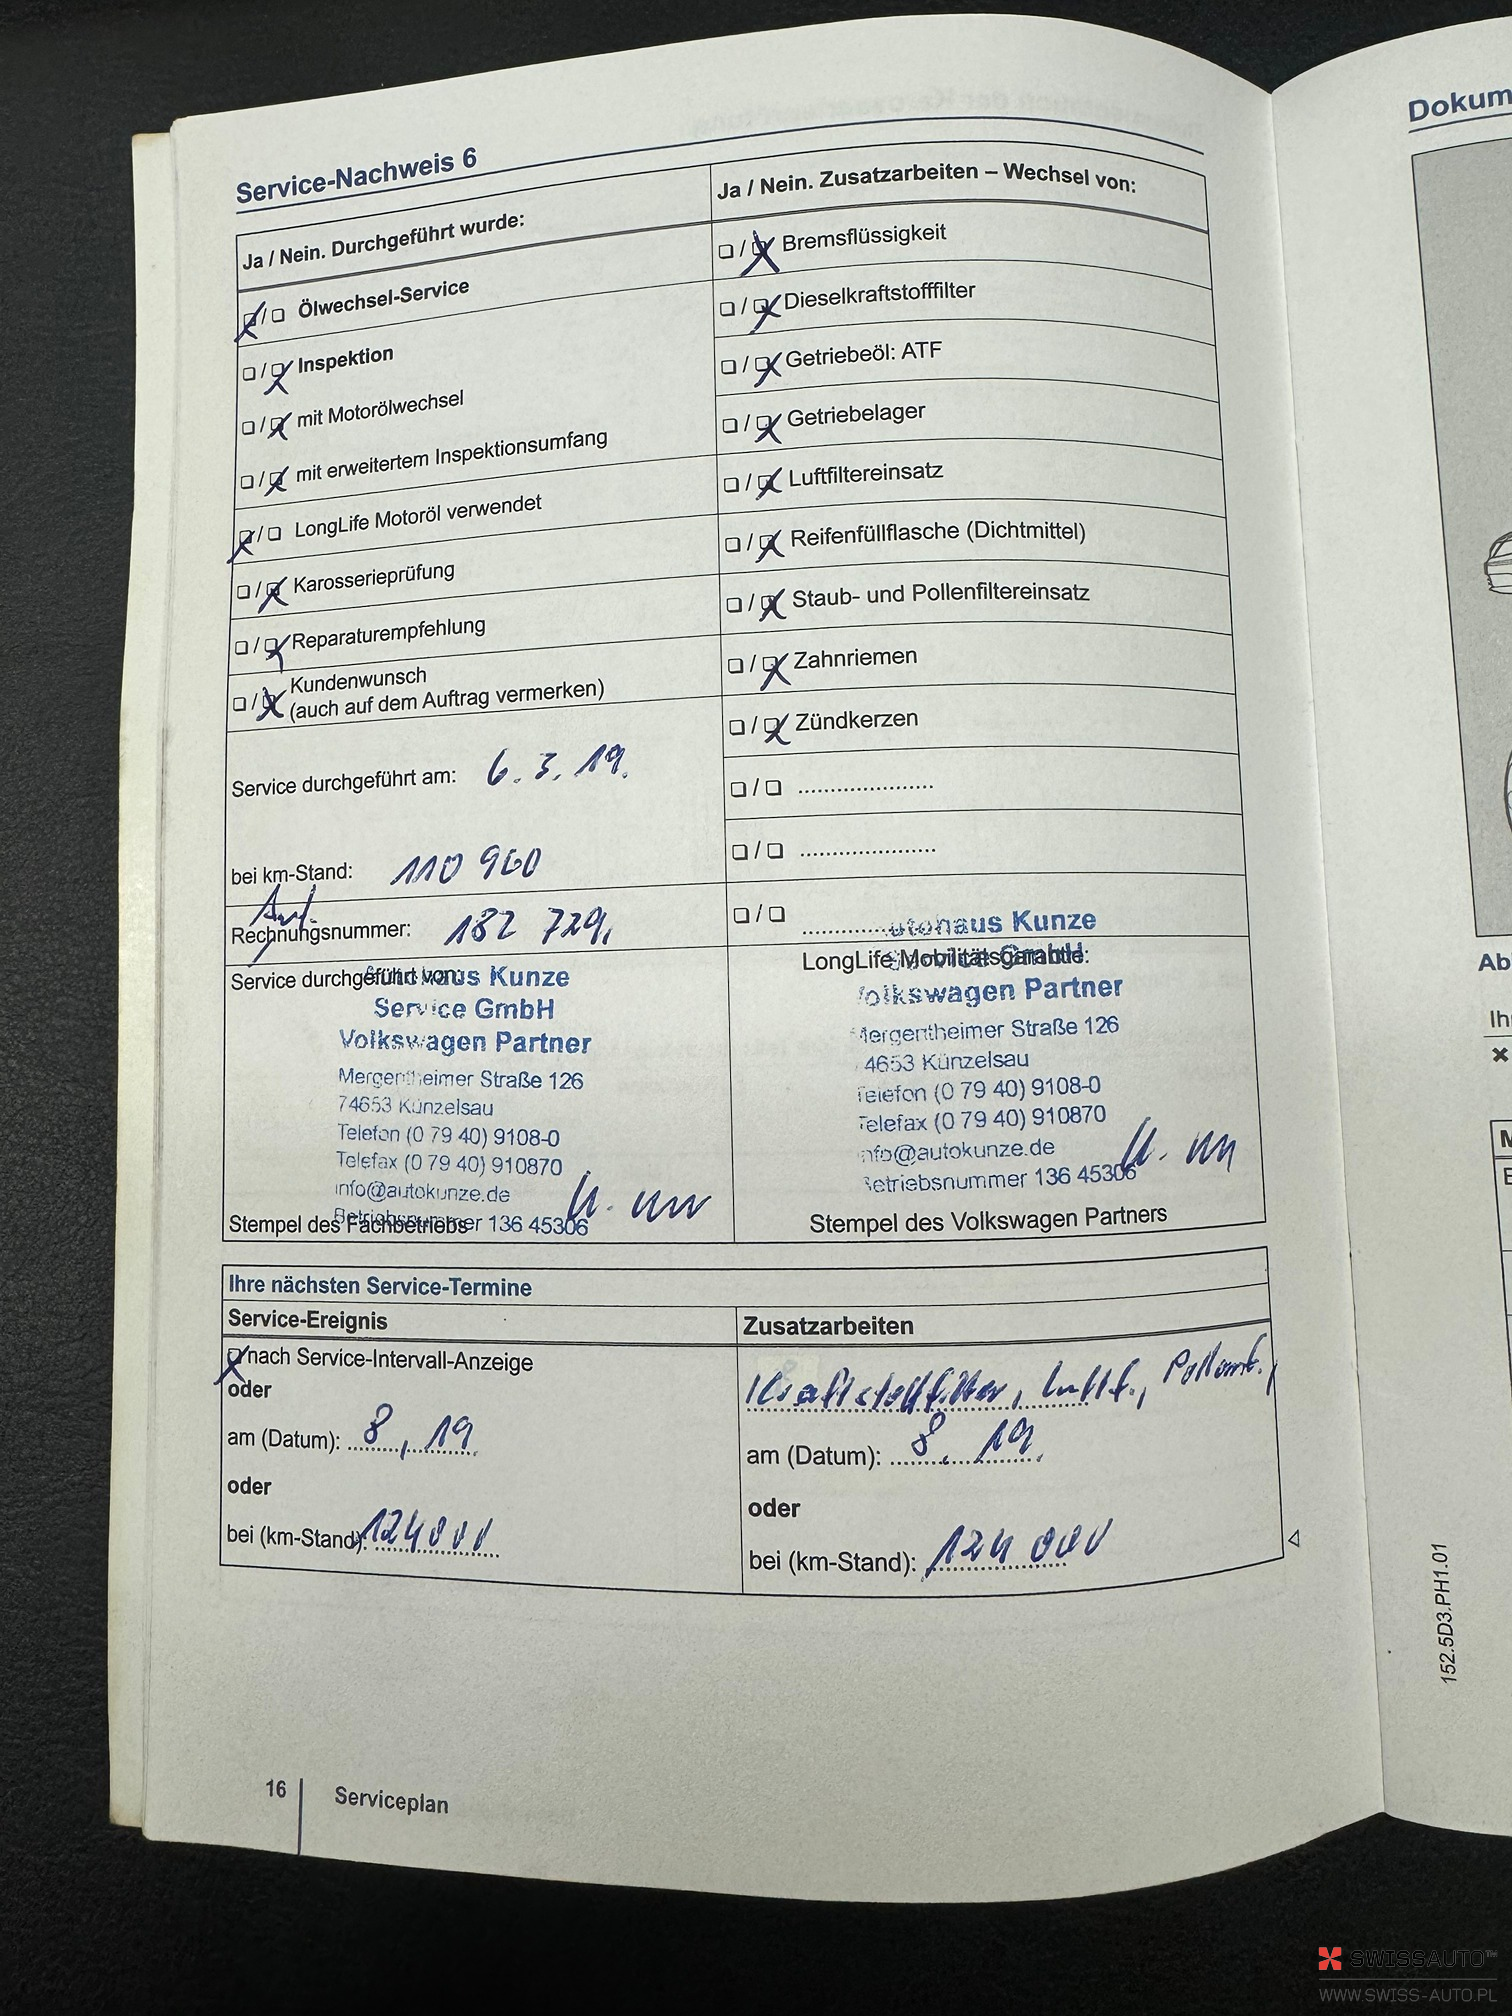 Service-Nachweis 6
Ja / Nein. Durchgeführt wurde:
Ölwechsel-Service
Inspektion
mit Motorölwechsel
mit erweitertem Inspektionsumfang
LongLife Motoröl verwendet
Karosserieprüfung
Reparaturempfehlung
Kundenwunsch
(auch auf dem Auftrag vermerken)
Service durchgeführt am: 6.3.19.
bei km-Stand: 110 960
Auf.
Rechnungsnummer: 182 729,
Service durchgeführt von:
Autohaus Kunze
Service GmbH
Volkswagen Partner
Mergentheimer Straße 126
74653 Künzelsau
Telefon (0 79 40) 9108-0
Telefax (0 79 40) 910870
info@autokunze.de
Betriebsnummer 136 45306
Stempel des Fachbetriebs
Ja / Nein. Zusatzarbeiten – Wechsel von:
Bremsflüssigkeit
Dieselkraftstofffilter
Getriebeöl: ATF
Getriebelager
Luftfiltereinsatz
Reifenfüllflasche (Dichtmittel)
Staub- und Pollenfiltereinsatz
Zahnriemen
Zündkerzen
Autohaus Kunze
Service GmbH
LongLife Mobilitätsgarantie:
Volkswagen Partner
Mergentheimer Straße 126
74653 Künzelsau
Telefon (0 79 40) 9108-0
Telefax (0 79 40) 910870
info@autokunze.de
Betriebsnummer 136 45306
Stempel des Volkswagen Partners
Ihre nächsten Service-Termine
Service-Ereignis
nach Service-Intervall-Anzeige
oder
am (Datum): 8, 19.
oder
bei (km-Stand): 124000
Zusatzarbeiten
Kraftstoffilter, Luftf., Pollenf.,
am (Datum): 8. 19.
oder
bei (km-Stand): 124 000
16
Serviceplan
Dokum
Ab
Ih
152.5D3.PH1.01
SWISSAUTO™
WWW.SWISS-AUTO.PL